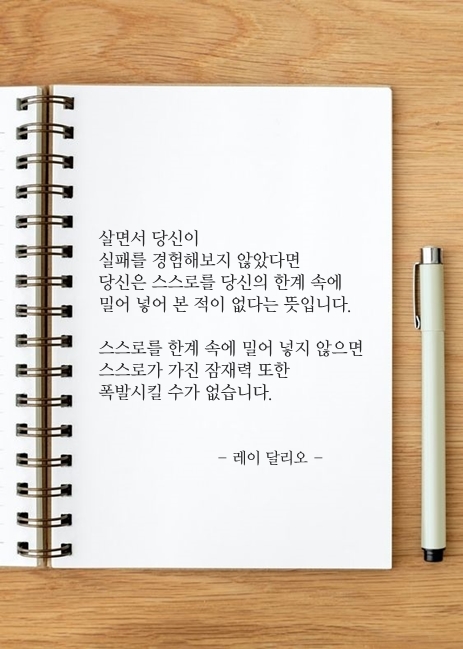 살면서 당신이
실패를 경험해보지 않았다면
당신은 스스로를 당신의 한계 속에
밀어 넣어 본 적이 없다는 뜻입니다.
스스로를 한계 속에 밀어 넣지 않으면
스스로가 가진 잠재력 또한
폭발시킬 수가 없습니다.
- 레이 달리오 -